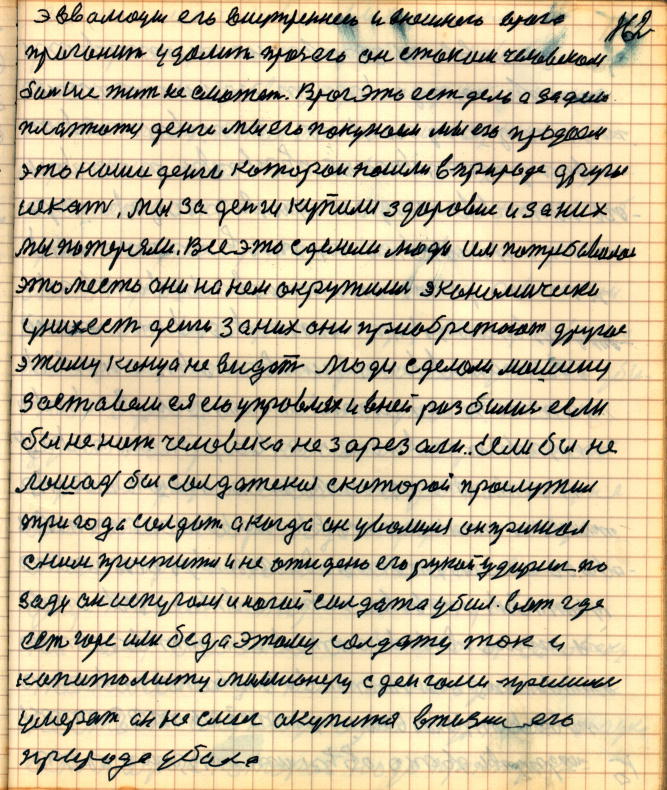 162
его внутреннего и внешнего врага
прогонит удалит прочего он с таким человеком
больше жит не сможет. Враг это ест дело а за дело
платют денги мы его покупаем мы его продаем
это наши денги которои пошли в природе другие
искат, мы за денги купили здоровие и за них
мы потеряли. Все это сделали люди им потребовалос
это место они на нем окружили экономически
у них ест денги за них они приобретают другое
этому конца не видат люди сделали машину
заставели ся ею управлят и в ней разбился если
бы не нож человека не зарезали.. Если бы не
лошад был солдатская с которой прослужил
три года солдат а когда он уволился он пришол
с ним простится и не ожидено его рукой ударил по
заду он испугался и ногой солдата убил. вот где
ест горе или беда этому солдату так и
капиталисту миллионеру с денгами пришлос
умерат он не смог окупится в жизни его
природа убила